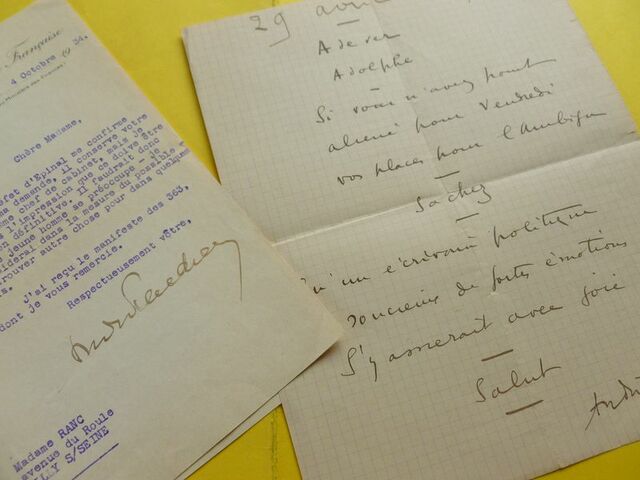 Française
4 Octobre 19 34.
Chère Madame,
fet d'Epinal me confirme
demande, il conserve votre
chef de cabinet, mais je
l'impression que ce doive être
définitive. Il faudrait donc
jeune homme se préoccupe - je
dérai dans la mesure du possible
trouver autre chose pour dans quelques
J'ai reçu le manifeste des 363,
dont je vous remercie.
Respectueusement vôtre,
Madame RANC
avenue du Roule
LLY S/SEINE
29 avril
Aderer
Adolphe
Si vous n'avez point
aliéné pour Vendredi
vos places pour l'Ambigu
Sachez
Qu'un écrivain politique
soucieux de fortes émotions
s'y assierait avec joie
Salut
André